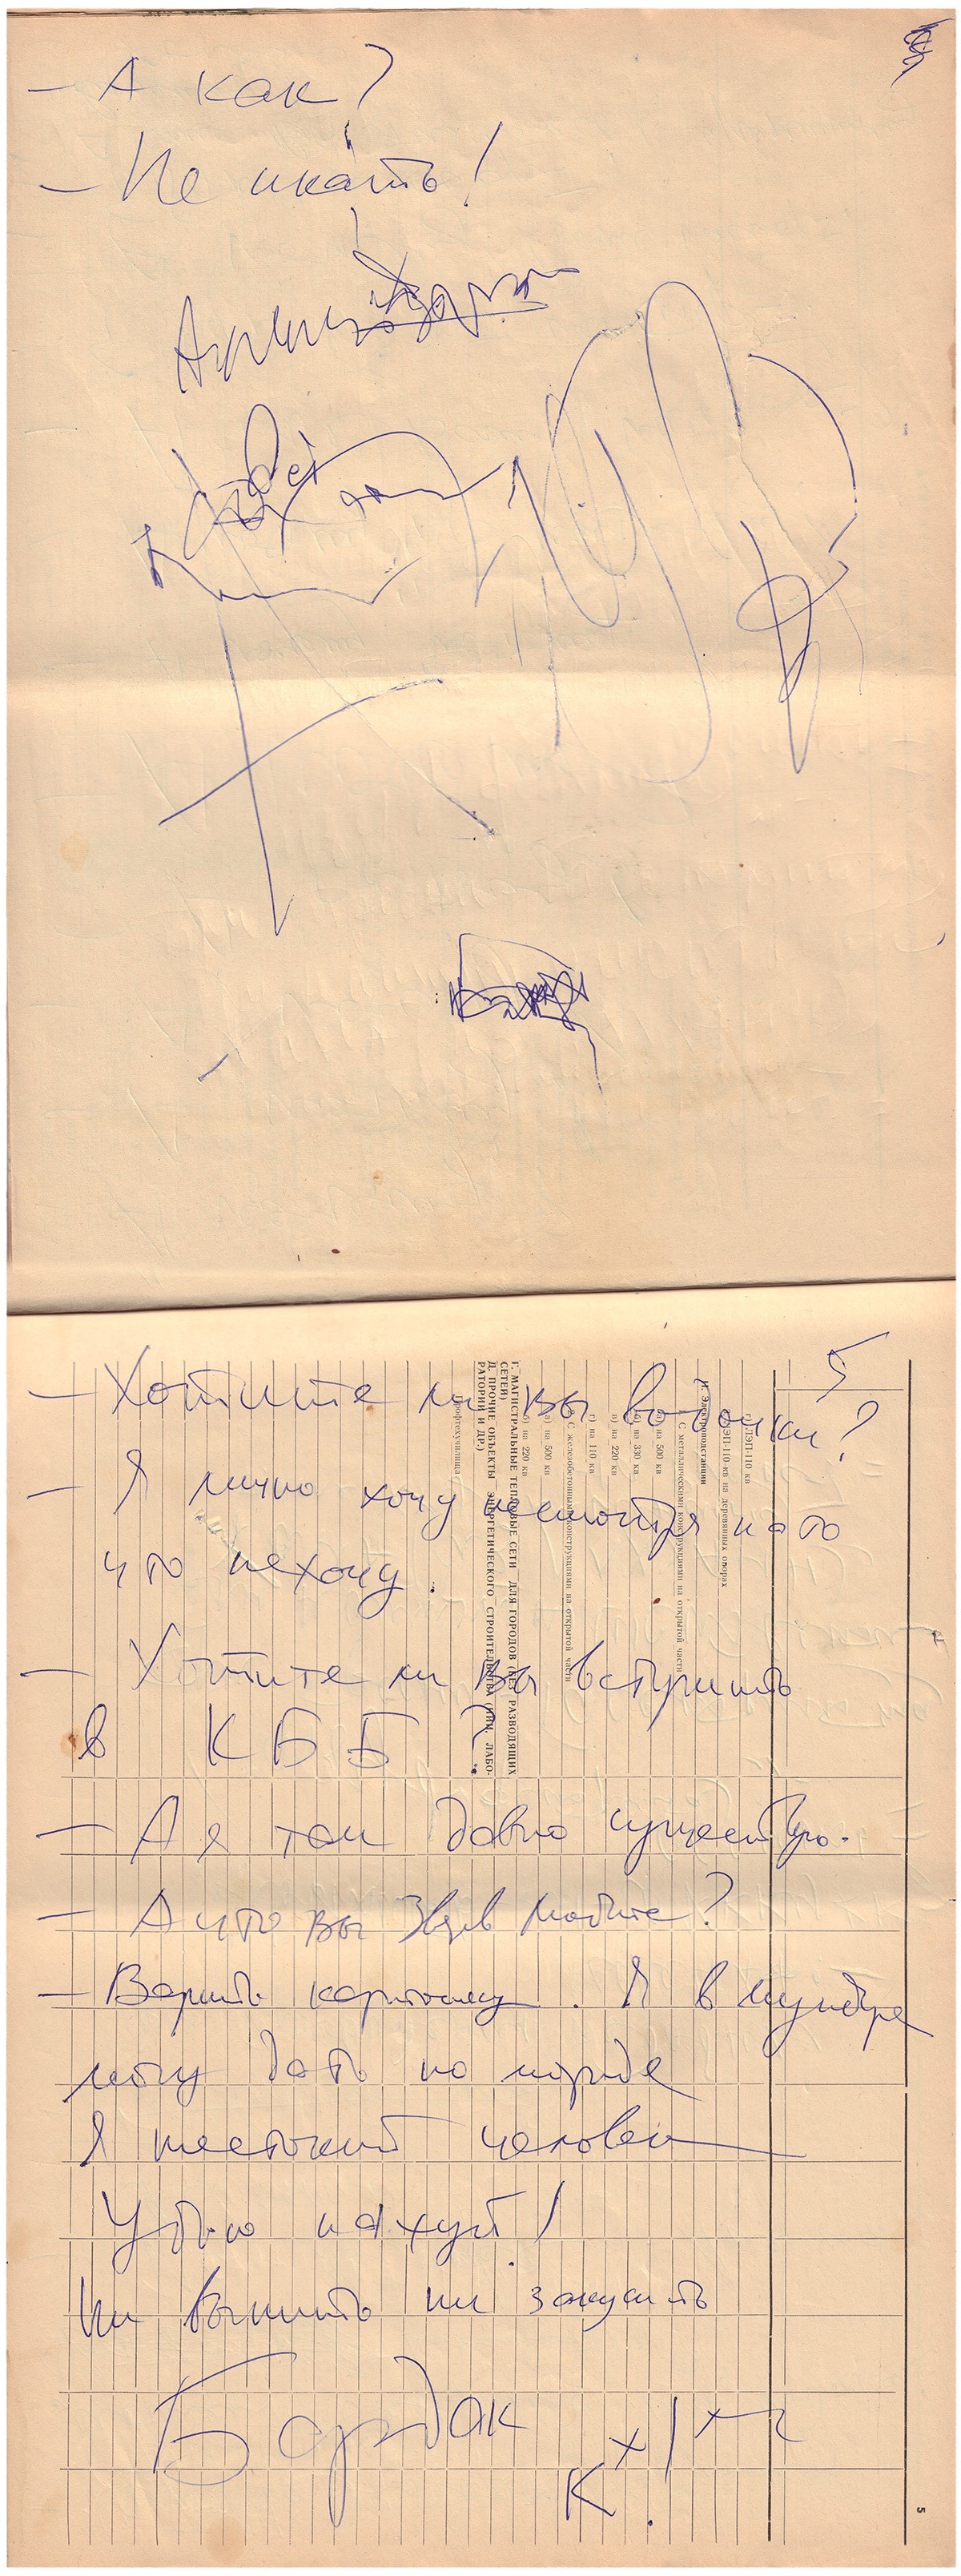 — А как?
— Не икать!
5
— Хотите ли вы водочки?
— Я лично хочу несмотря на то
что нехочу.
— Хотите ли вы вступить
в КББ?
— А я там давно существую.
— А что вы любите?
— Варить картошку. Я в мундире
могу дать по морде
Я жестокий человек
Убью нахуй!
Ни выпить ни закусить
Бардак
г) ЛЭП-110 кв
ЛЭП-110 кв на деревянных опорах
И. Электроподстанции
С металлическими конструкциями на открытой части
а) на 500 кв
б) на 330 кв
в) на 220 кв
г) на 110 кв
С железобетонными конструкциями на открытой части
а) на 500 кв
б) на 220 кв
Г. МАГИСТРАЛЬНЫЕ ТЕПЛОВЫЕ СЕТИ ДЛЯ ГОРОДОВ (БЕЗ РАЗВОДЯЩИХ
СЕТЕЙ)
Д. ПРОЧИЕ ОБЪЕКТЫ ЭНЕРГЕТИЧЕСКОГО СТРОИТЕЛЬСТВА (НИИ, ЛАБО-
РАТОРИИ И ДР.)
Профтехучилища
5